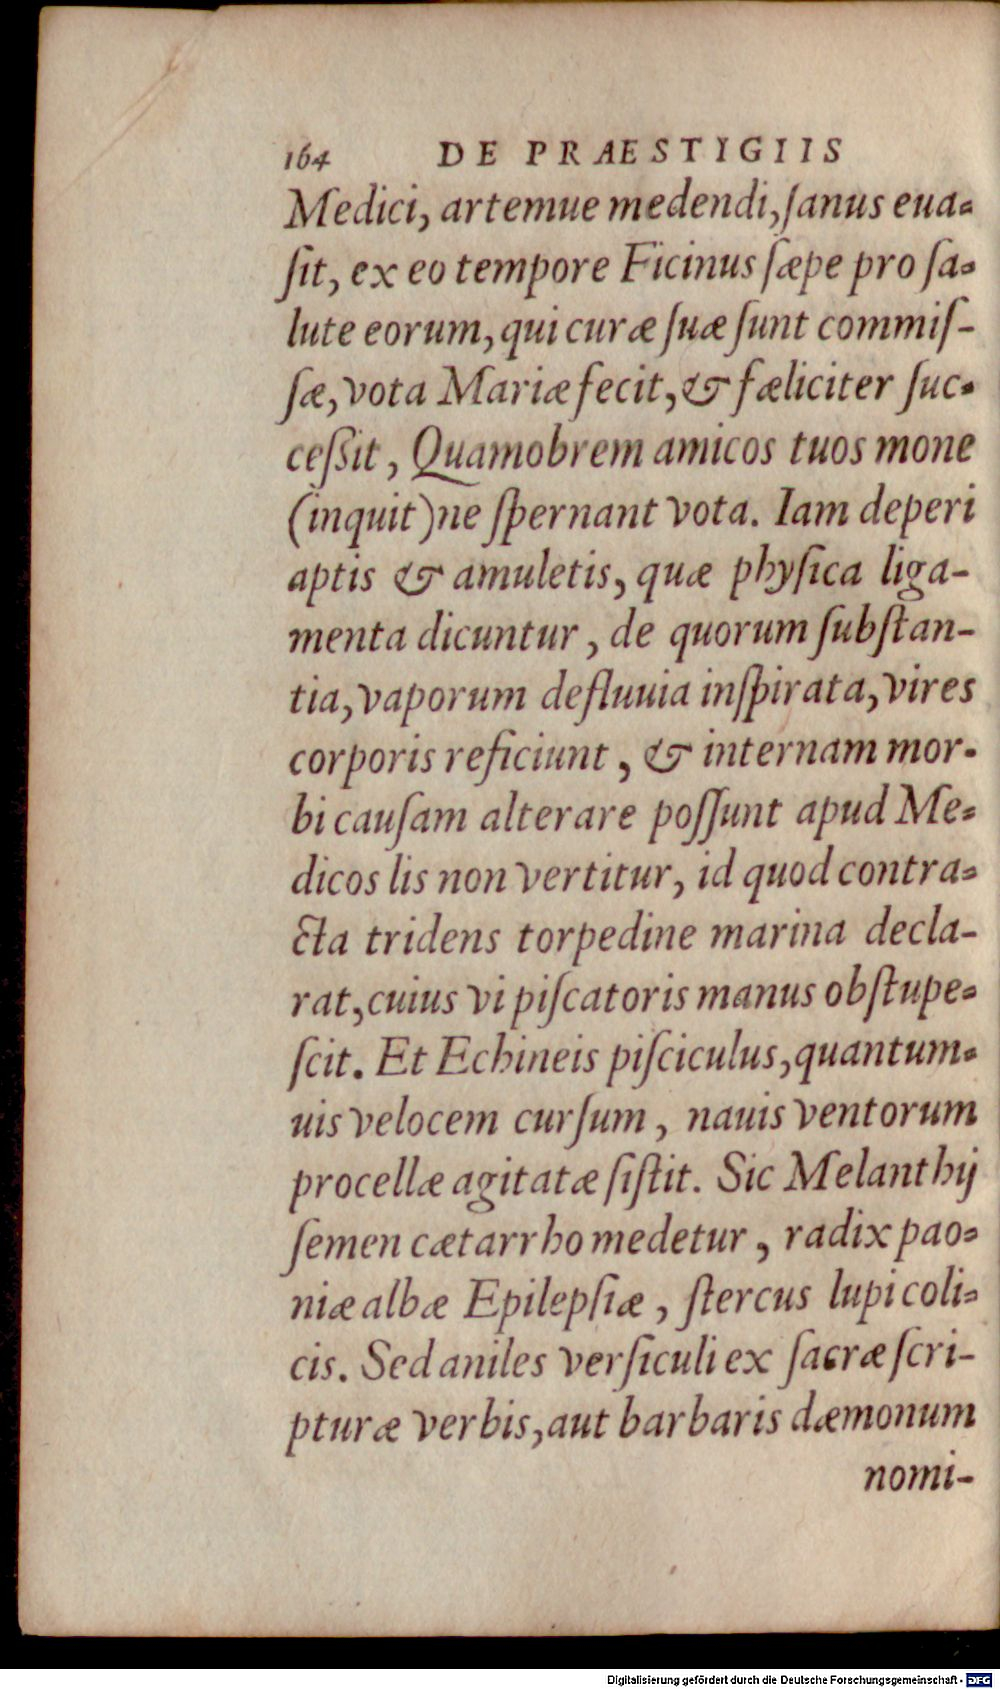 164 DE PRAESTIGIIS
Medici, artemue medendi, ſanus eua-
ſit, ex eo tempore Ficinus ſæpe pro ſa-
lute eorum, qui curæ ſuæ ſunt commiſ-
ſæ, vota Mariæ fecit, & fæliciter ſuc-
ceſſit, Quamobrem amicos tuos mone
(inquit) ne ſpernant vota. Iam deperi
aptis & amuletis, quæ phyſica liga-
menta dicuntur, de quorum ſubſtan-
tia, vaporum defluuia inſpirata, vires
corporis reficiunt, & internam mor-
bi cauſam alterare poſſunt apud Me-
dicos lis non vertitur, id quod contra-
cta tridens torpedine marina decla-
rat, cuius vi piſcatoris manus obſtupe-
ſcit. Et Echineis piſciculus, quantum-
uis velocem curſum, nauis ventorum
procellæ agitatæ ſiſtit. Sic Melanthij
ſemen cætarrho medetur, radix pao-
niæ albæ Epilepſiæ, ſtercus lupi coli-
cis. Sed aniles verſiculi ex ſacræ ſcri-
pturæ verbis, aut barbaris dæmonum
nomi-
Digitalisierung gefördert durch die Deutsche Forschungsgemeinschaft - DFG